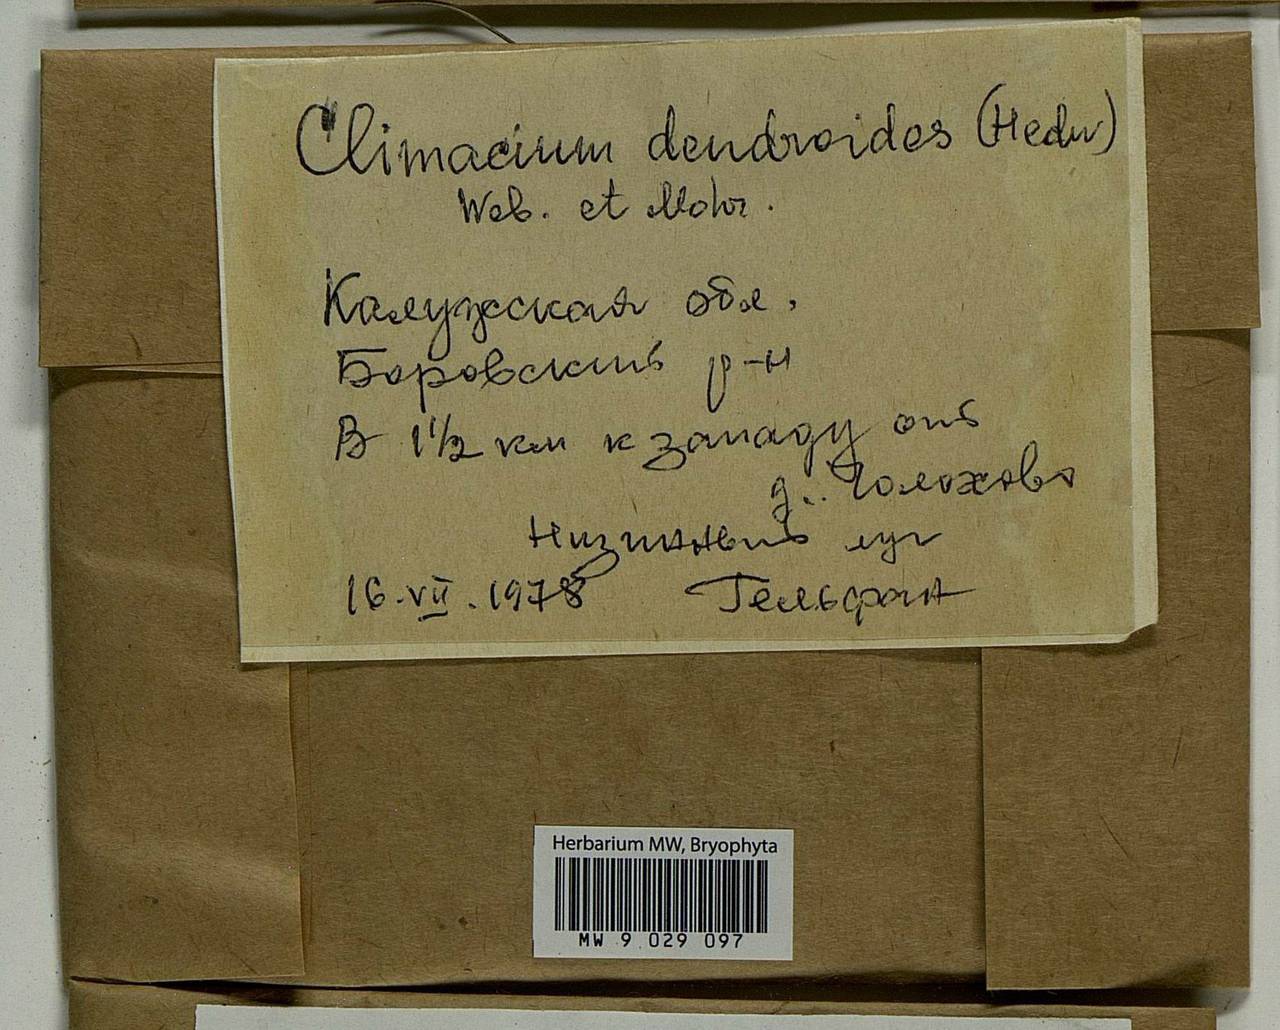 Climacium dendroides (Hedw)
Web. et Mohr.
Калужская обл.
Боровский р-н
В 1 1/2 км к западу от
д. Голохово
Низинный луг
16.VII.1978 Гельфант
Herbarium MW, Bryophyta
MW 9 029 097